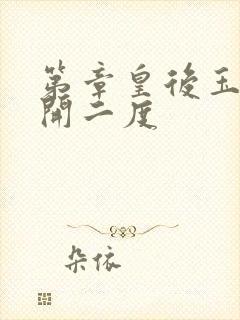 第章皇後玉
開二度
朵依